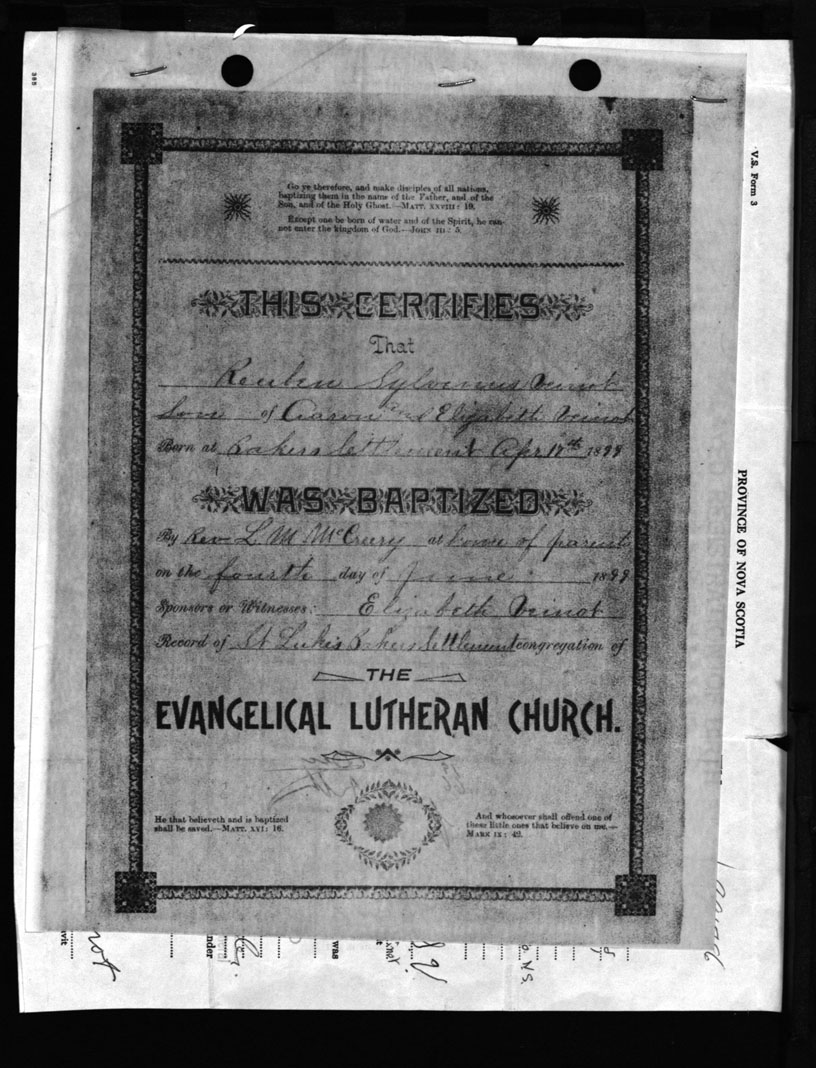 V.S. Form 3
PROVINCE OF NOVA SCOTIA
Go ye therefore, and make disciples of all nations,
baptizing them in the name of the Father, and of the
Son, and of the Holy Ghost.—MATT. XXVIII: 19.
Except one be born of water and of the Spirit, he can-
not enter the kingdom of God.—JOHN III: 5.
THIS CERTIFIES
That
Reuben Sylvanus Veinot
Son of Aaron and Elizabeth Veinot
Born at Bakers Settlement Apr 17th 1899
WAS BAPTIZED
By Rev L M McCreery at home of parent
on the fourth day of June 1899
Sponsors or Witnesses: Elizabeth Veinot
Record of St Lukes Bakers Settlement congregation of
THE
EVANGELICAL LUTHERAN CHURCH.
He that believeth and is baptized
shall be saved.—MATT. XVI: 16.
And whosoever shall offend one of
these little ones that believe on me.—
MARK IX: 42.
avit
not
nder
was
N.S.